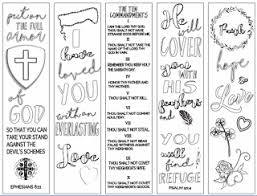 put on
THE FULL
ARMOR
of
GOD
SO THAT YOU CAN
TAKE YOUR STAND
AGAINST THE
DEVIL'S SCHEMES
EPHESIANS 6:11
I
have
loved
you
with
an
EVERLASTING
Love
THE TEN
COMMANDMENTS
I
THOU SHALT NOT HAVE
STRANGE GODS BEFORE ME
II
THOU SHALT NOT TAKE THE
NAME OF THE LORD THY
GOD IN VAIN
III
REMEMBER THOU KEEP HOLY
THE SABBATH DAY
IV
HONOR THY FATHER AND THY
MOTHER
V
THOU SHALT NOT KILL
VI
THOU SHALT NOT COMMIT
ADULTERY
VII
THOU SHALT NOT STEAL
VIII
THOU SHALT NOT BEAR
FALSE WITNESS
IX
THOU SHALT NOT COVET THY
NEIGHBOR'S WIFE
X
THOU SHALT NOT COVET
THY NEIGHBOR'S GOODS
He
will
you
with
HIS
feathers
and
you
will
find
REFUGE
PSALM 91:4
Faith
hope
&
Love